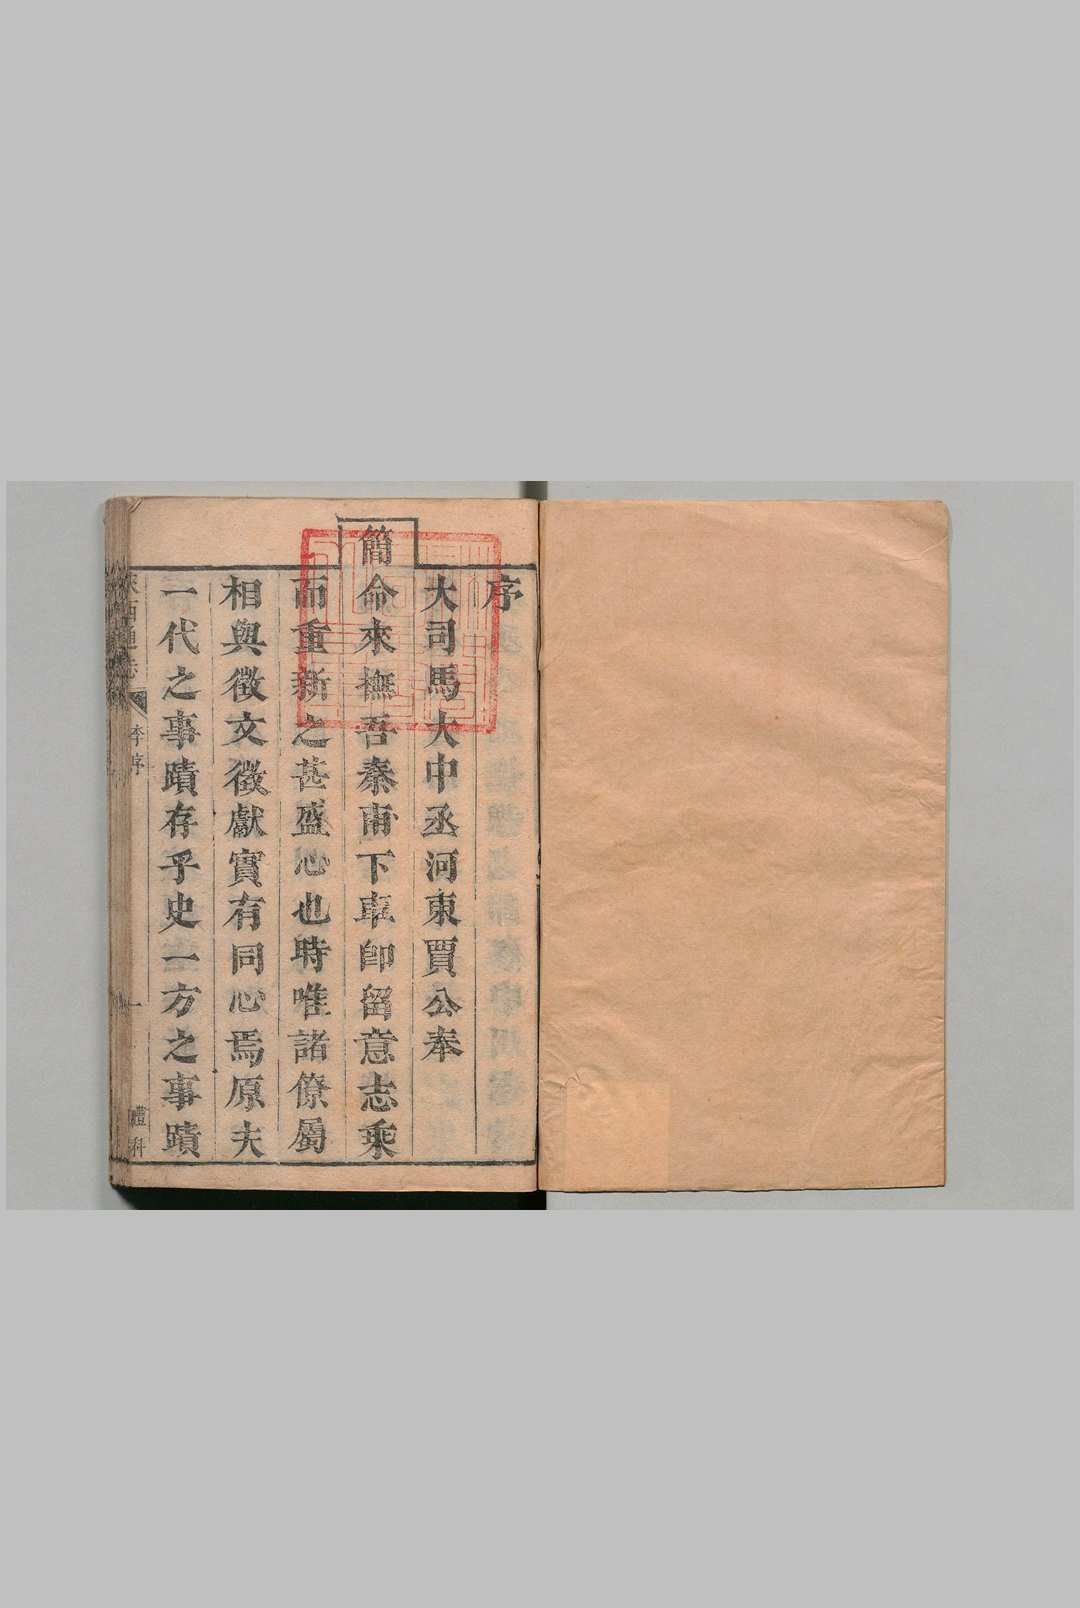 序
大司馬大中丞河東賈公奉
簡命來撫吾秦甫下車即留意志乘
而重新之甚盛心也時唯諸僚屬
相與徵文徵獻實有同心焉原夫
一代之事蹟存乎史一方之事蹟
陝西通志 李序 一 禮科